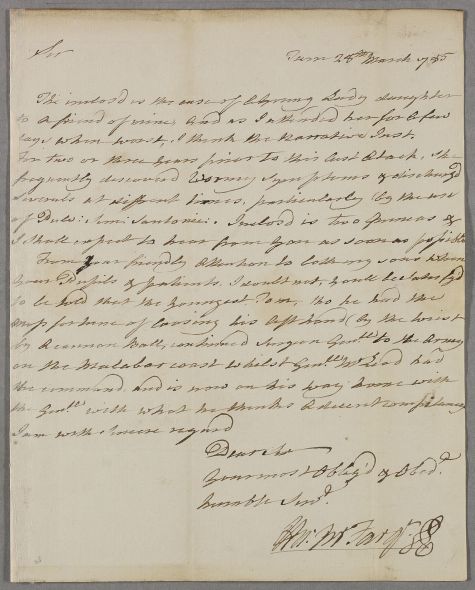 Sir
Turin 28th March 1785
The inclosd is the case of a young Lady daughter
to a friend of mine, and as I attended her for a few
days when worst, I think the Narrative Just.
For two or three years prior to this last Attack, she
frequently discovered Wormy Symptoms & discharg'd
severals at different times, particularly by the use
of Pulv: Sem: Santonic:. Inclosd is two Guineas &
I shall expect to hear from you as soon as possible
From your friendly Attention to both my sons when
your Pupils & patients. I doubt not, you'll be satisfy'd
to be told that the youngest Tom, tho he had the
misfortune of loosing his left hand (by the wrist
by a Cannon Ball, continued Surgeon Genll. to the Army
on the Malabar coast whilst Genll. McLeod had
the command and is now on his way home with
the Genll. with what he thinks a decent competency
I am with sincere regard
Dear Sir
your most Oblig'd & Obedt.
humble Servt.